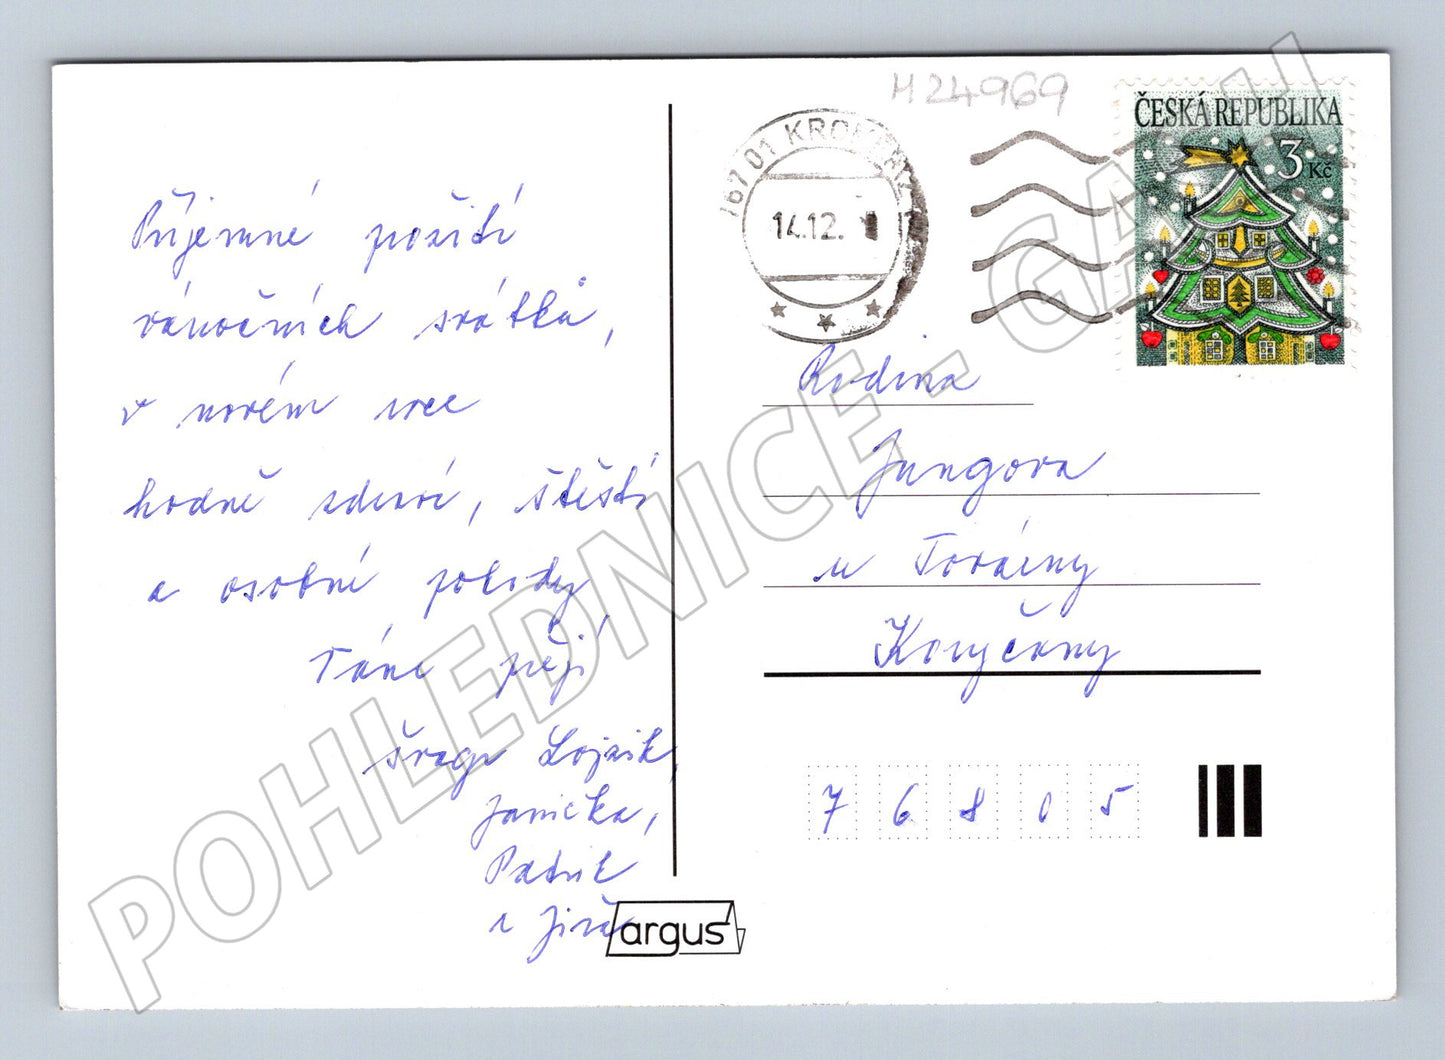 M24969
ČESKÁ REPUBLIKA
3 Kč
767 01 KROMĚŘÍŽ
14.12.
Příjemné prožití
vánočních svátků,
v novém roce
hodně zdraví, štěstí
a osobní pohody
Vám přejí
Lojzik,
Janička,
Patrik
a Jirka
Rodina
Jungova
u Továrny
Koryčany
7 6 8 0 5
argus
POHLEDNICE - GASH